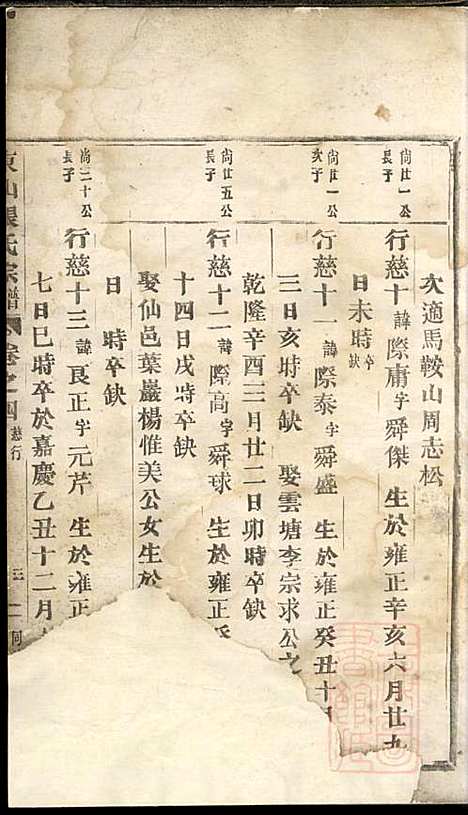 次適馬鞍山周志松
尚廿一公
長子
行慈十諱際庸字舜傑 生於雍正辛亥六月廿九
日未時卒缺
尚廿一公
次子
行慈十一諱際泰字舜盛 生於雍正癸丑十月
三日亥時卒缺 娶雲塘李宗求公之
乾隆辛酉三月廿二日卯時卒缺
尚廿五公
長子
行慈十二諱際高字舜球 生於雍正
十四日戌時卒缺
娶仙邑葉巖楊惟美公女生於
日 時卒缺
尚三十公
長子
行慈十三諱良正字元芹 生於雍正
七日巳時卒於嘉慶乙丑十二月
東山張氏宗譜 卷之四 慈行